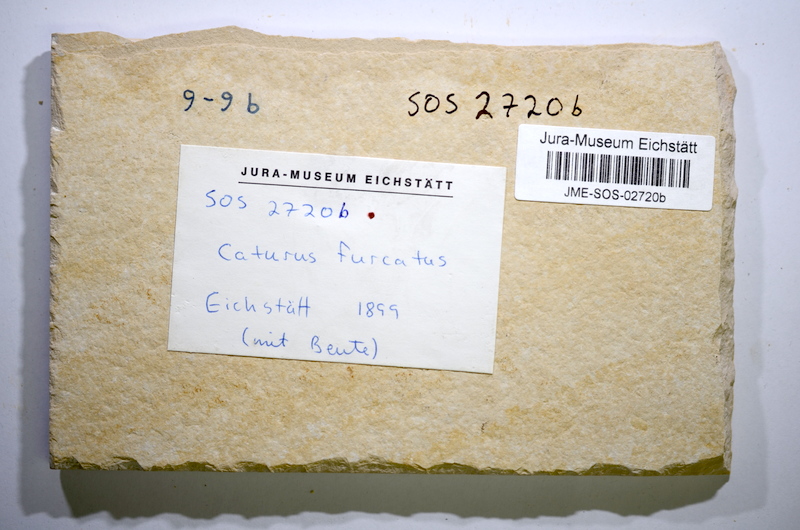 9-9b
SOS 2720b
Jura-Museum Eichstätt
JME-SOS-02720b
JURA-MUSEUM EICHSTÄTT
SOS 2720b
Caturus furcatus
Eichstätt 1899
(mit Beute)